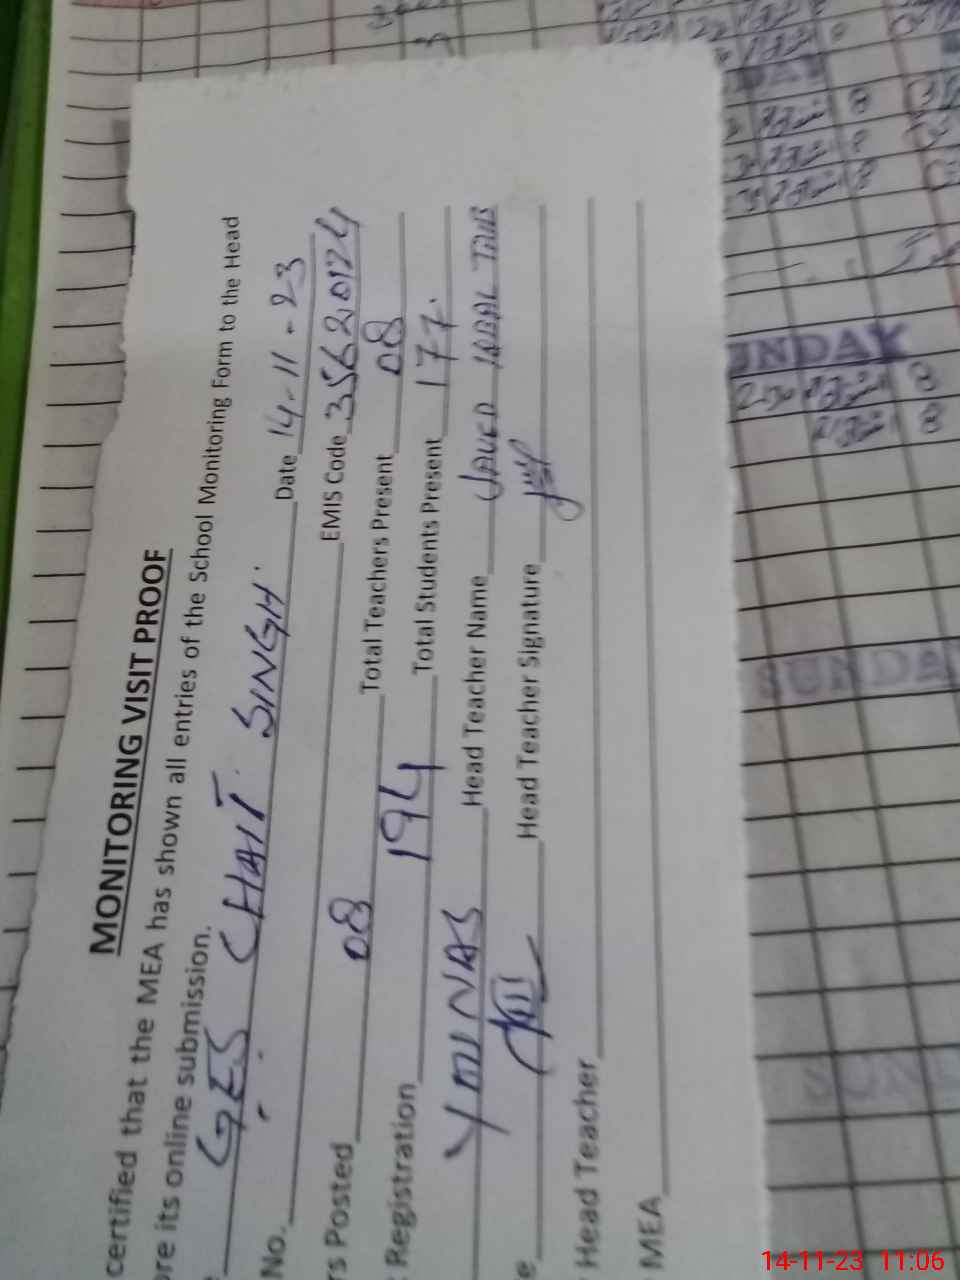 MONITORING VISIT PROOF
certified that the MEA has shown all entries of the School Monitoring Form to the Head
ore its online submission.
GES CHAIT SINGH. Date 14-11-23
No. EMIS Code 35620124
rs Posted 08 Total Teachers Present 08
Registration 194 Total Students Present 177.
Head Teacher Name JAVED IQBAL
e Head Teacher Signature
Head Teacher
MEA
SUNDAY
SUNDA
SUN
14-11-23 11:06